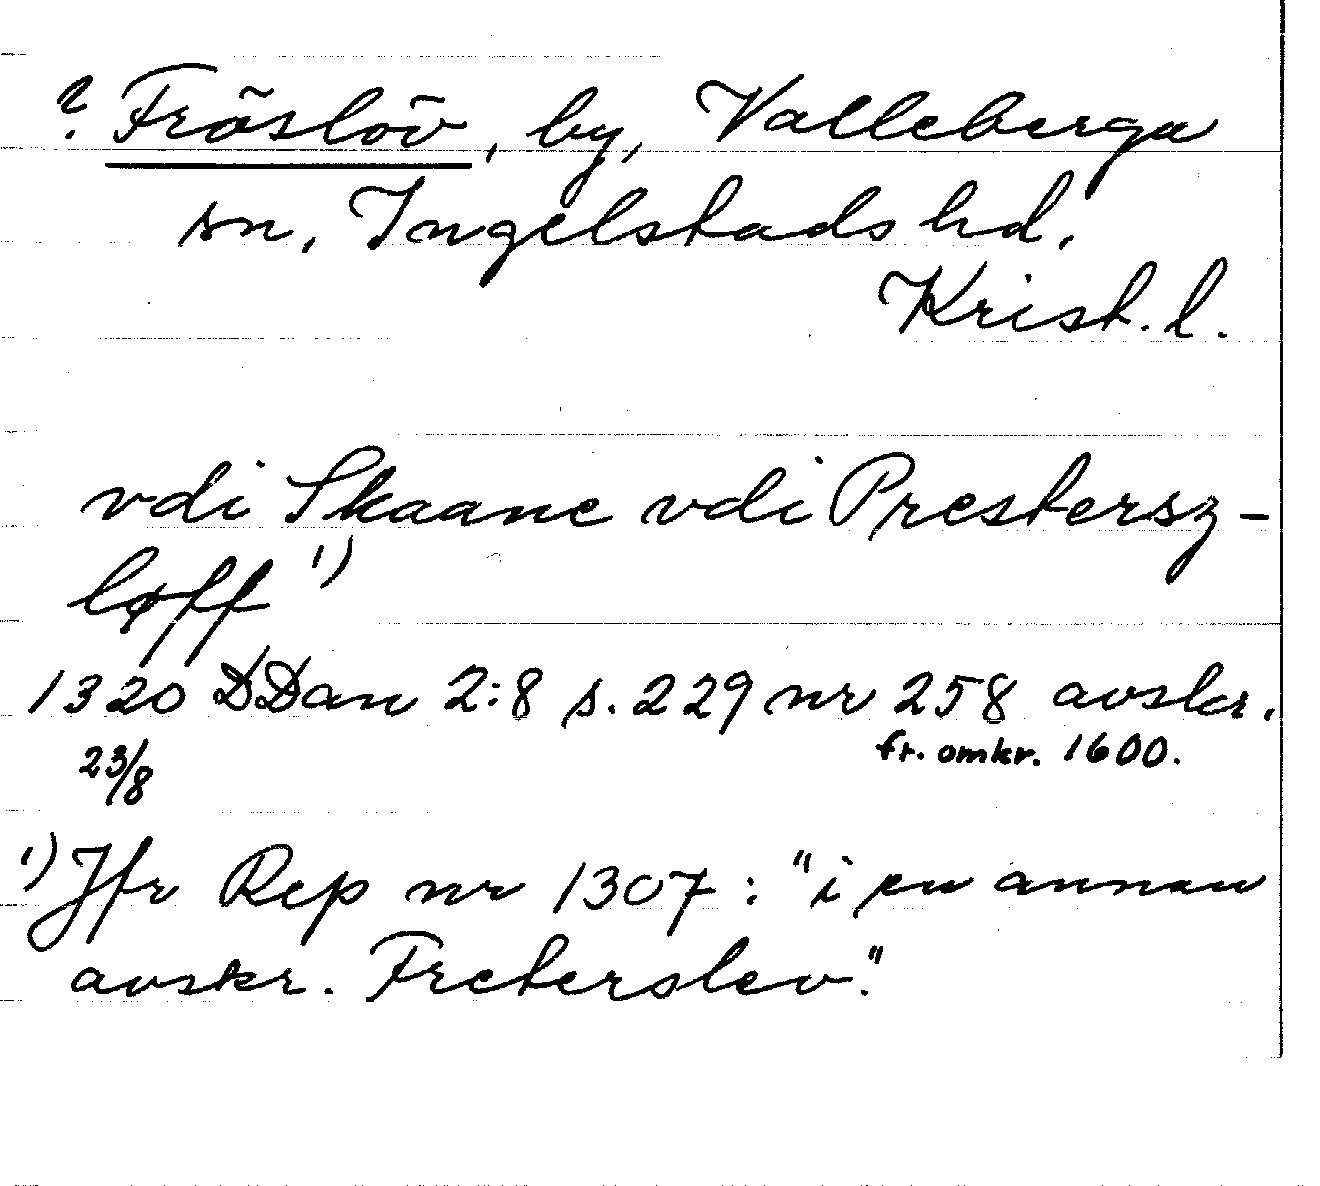 ? Fröslöv, by, Valleberga
sn, Ingelstads hd,
Krist. l.
vdi Skaane vdi Prestersz-
løff ¹)
1320 DDan 2:8 s. 229 nr 258 avskr.
23/8 fr. omkr. 1600.
¹) Jfr Rep nr 1307: "i en annan
avskr. Freterslev."